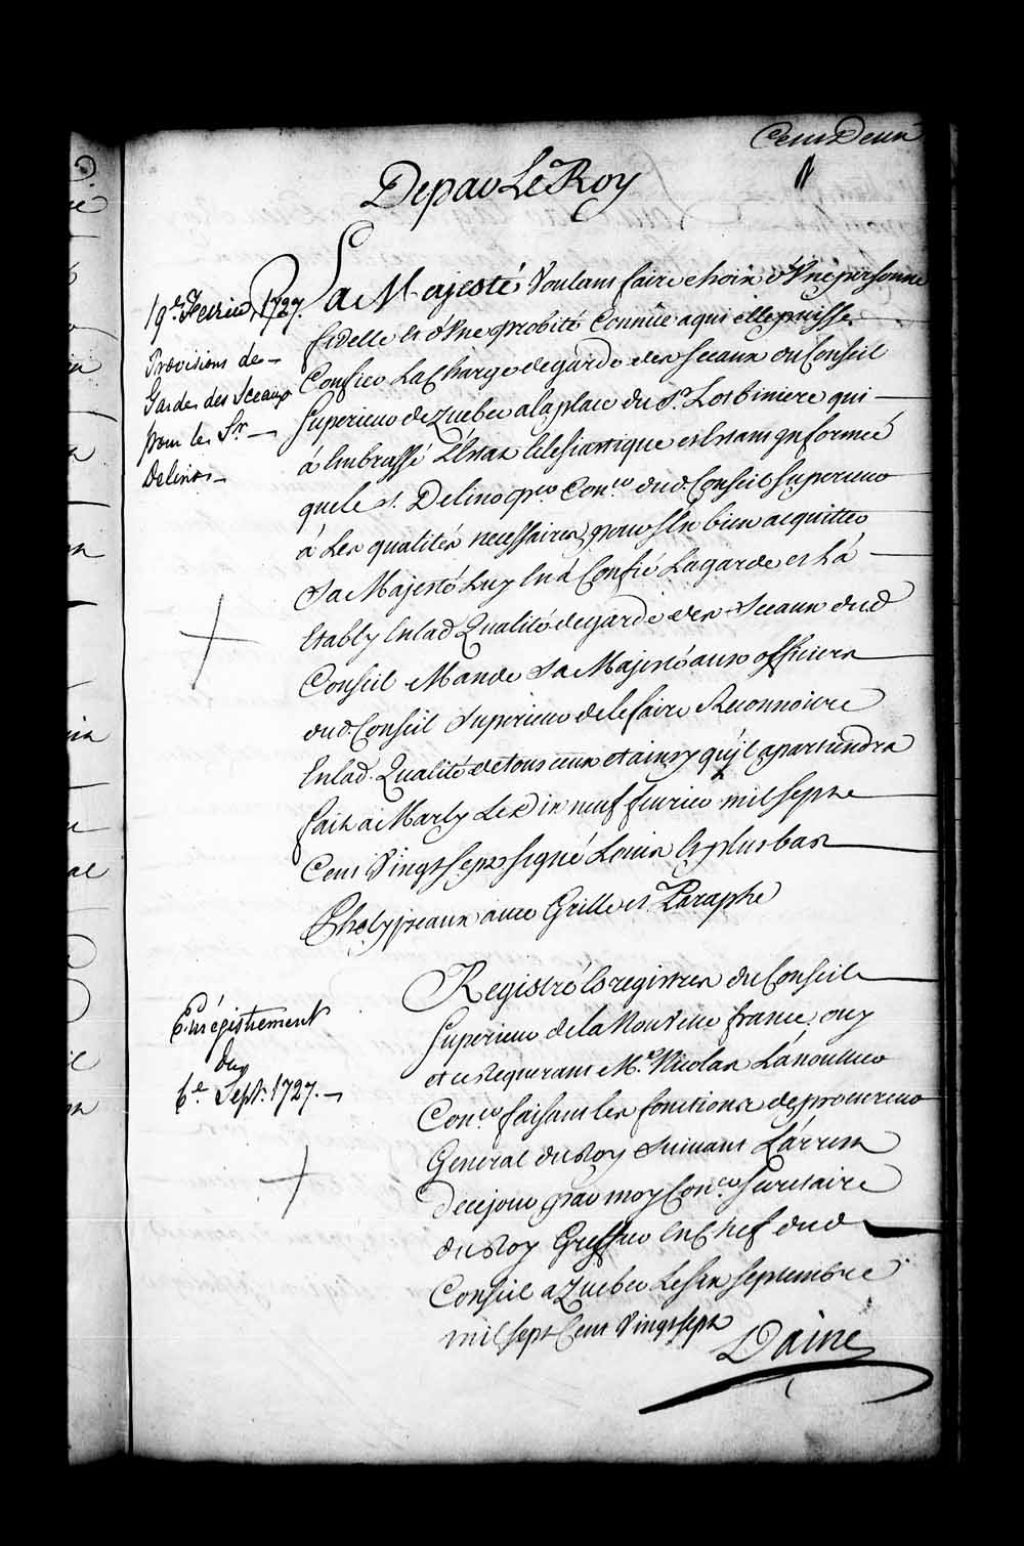 Cent Deux
De par Le Roy
19e. Fevrier, 1727.
Provisions de
Garde des Sceaux
pour le Sr.
Delino
Sa Majesté Voulant faire choix d'Une personne
fidelle et d'Une probité Connüe a qui elle puisse
Confier La Charge de garde des sceaux du Conseil
Superieur de Quebec a la place du Sr. Lotbiniere qui
á Embrassé L'Estat Eclesiastique et Estant informeé
que le s. Delino pr. Coner. dud. Conseil Superieur
á Les qualités necessaires pour s'En bien acquitter
Sa Majesté Luy En á Confié La garde et L'á
Etably En lad Qualité de garde des Sceaux dud
Conseil Mande Sa Majesté aux officiers
dud. Conseil Superieur de le faire Reconnoitre
En lad. Qualité de tous ceux et ainsy qu'jl apartiendra
fait a Marly Le Dix neuf fevrier mil sept
Cent Vingt sept signé Louis Et plus bas
Phelypeaux avec Grille et Paraphe
Enrégistrement
du
6e. Sept. 1727.
Registré Es registres du Conseil
Superieur de la Nouvelle france, ouy
et ce Requerant Me. Nicolas Lánoullier
Coner. faisant les fonctions de procureur
General du Roy Suivant L'árrest
de ce jour par moy Coner. Secretaire
du Roy Greffier En Chef dud
Conseil a Quebec Le six septembre
mil sept Cent Vingt sept
Daine